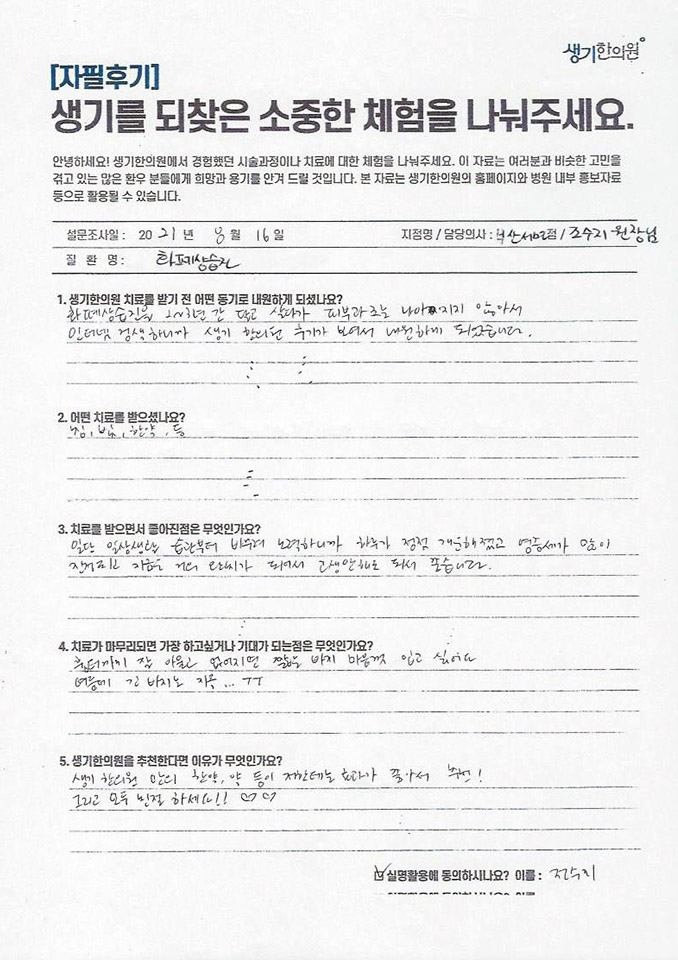 생기한의원
[자필후기]
생기를 되찾은 소중한 체험을 나눠주세요.
안녕하세요! 생기한의원에서 경험했던 시술과정이나 치료에 대한 체험을 나눠주세요. 이 자료는 여러분과 비슷한 고민을
겪고 있는 많은 환우 분들에게 희망과 용기를 안겨 드릴 것입니다. 본 자료는 생기한의원의 홈페이지와 병원 내부 홍보자료
등으로 활용될 수 있습니다.
설문조사일 : 20 21 년 8 월 16 일 지점명 / 담당의사 : 부산서면점 / 조수지 원장님
질 환 명 : 화폐상습진
1. 생기한의원 치료를 받기 전 어떤 동기로 내원하게 되셨나요?
화폐상습진을 2~3년 간 앓고 살다가 피부과로는 나아지지 않아서
인터넷 검색하니까 생기 한의원 후기가 보여서 내원하게 되었습니다.
2. 어떤 치료를 받으셨나요?
침, 한약, 등
3. 치료를 받으면서 좋아진점은 무엇인가요?
일단 일상생활 습관부터 바꾸려 노력하니까 하루가 점점 개운해졌고 염증세가 많이
지금은 거의 되어서 고생안해도 되서 좋습니다.
4. 치료가 마무리되면 가장 하고싶거나 기대가 되는점은 무엇인가요?
흉터까지 잘 아물고 없어지면 짧은 바지 마음껏 입고 싶어요
여름에 긴 바지는 지옥... ㅜㅜ
5. 생기한의원을 추천한다면 이유가 무엇인가요?
생기 한의원 만의 한약, 약 등이 저한테는 효과가 좋아서 추천!
그리고 모두 친절 하세요!! ♡♡
실명활용에 동의하시나요? 이름 : 전수지